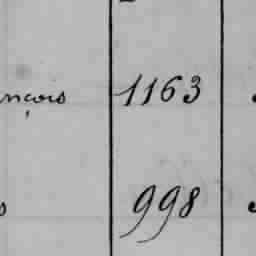 nçois 1163
s 998